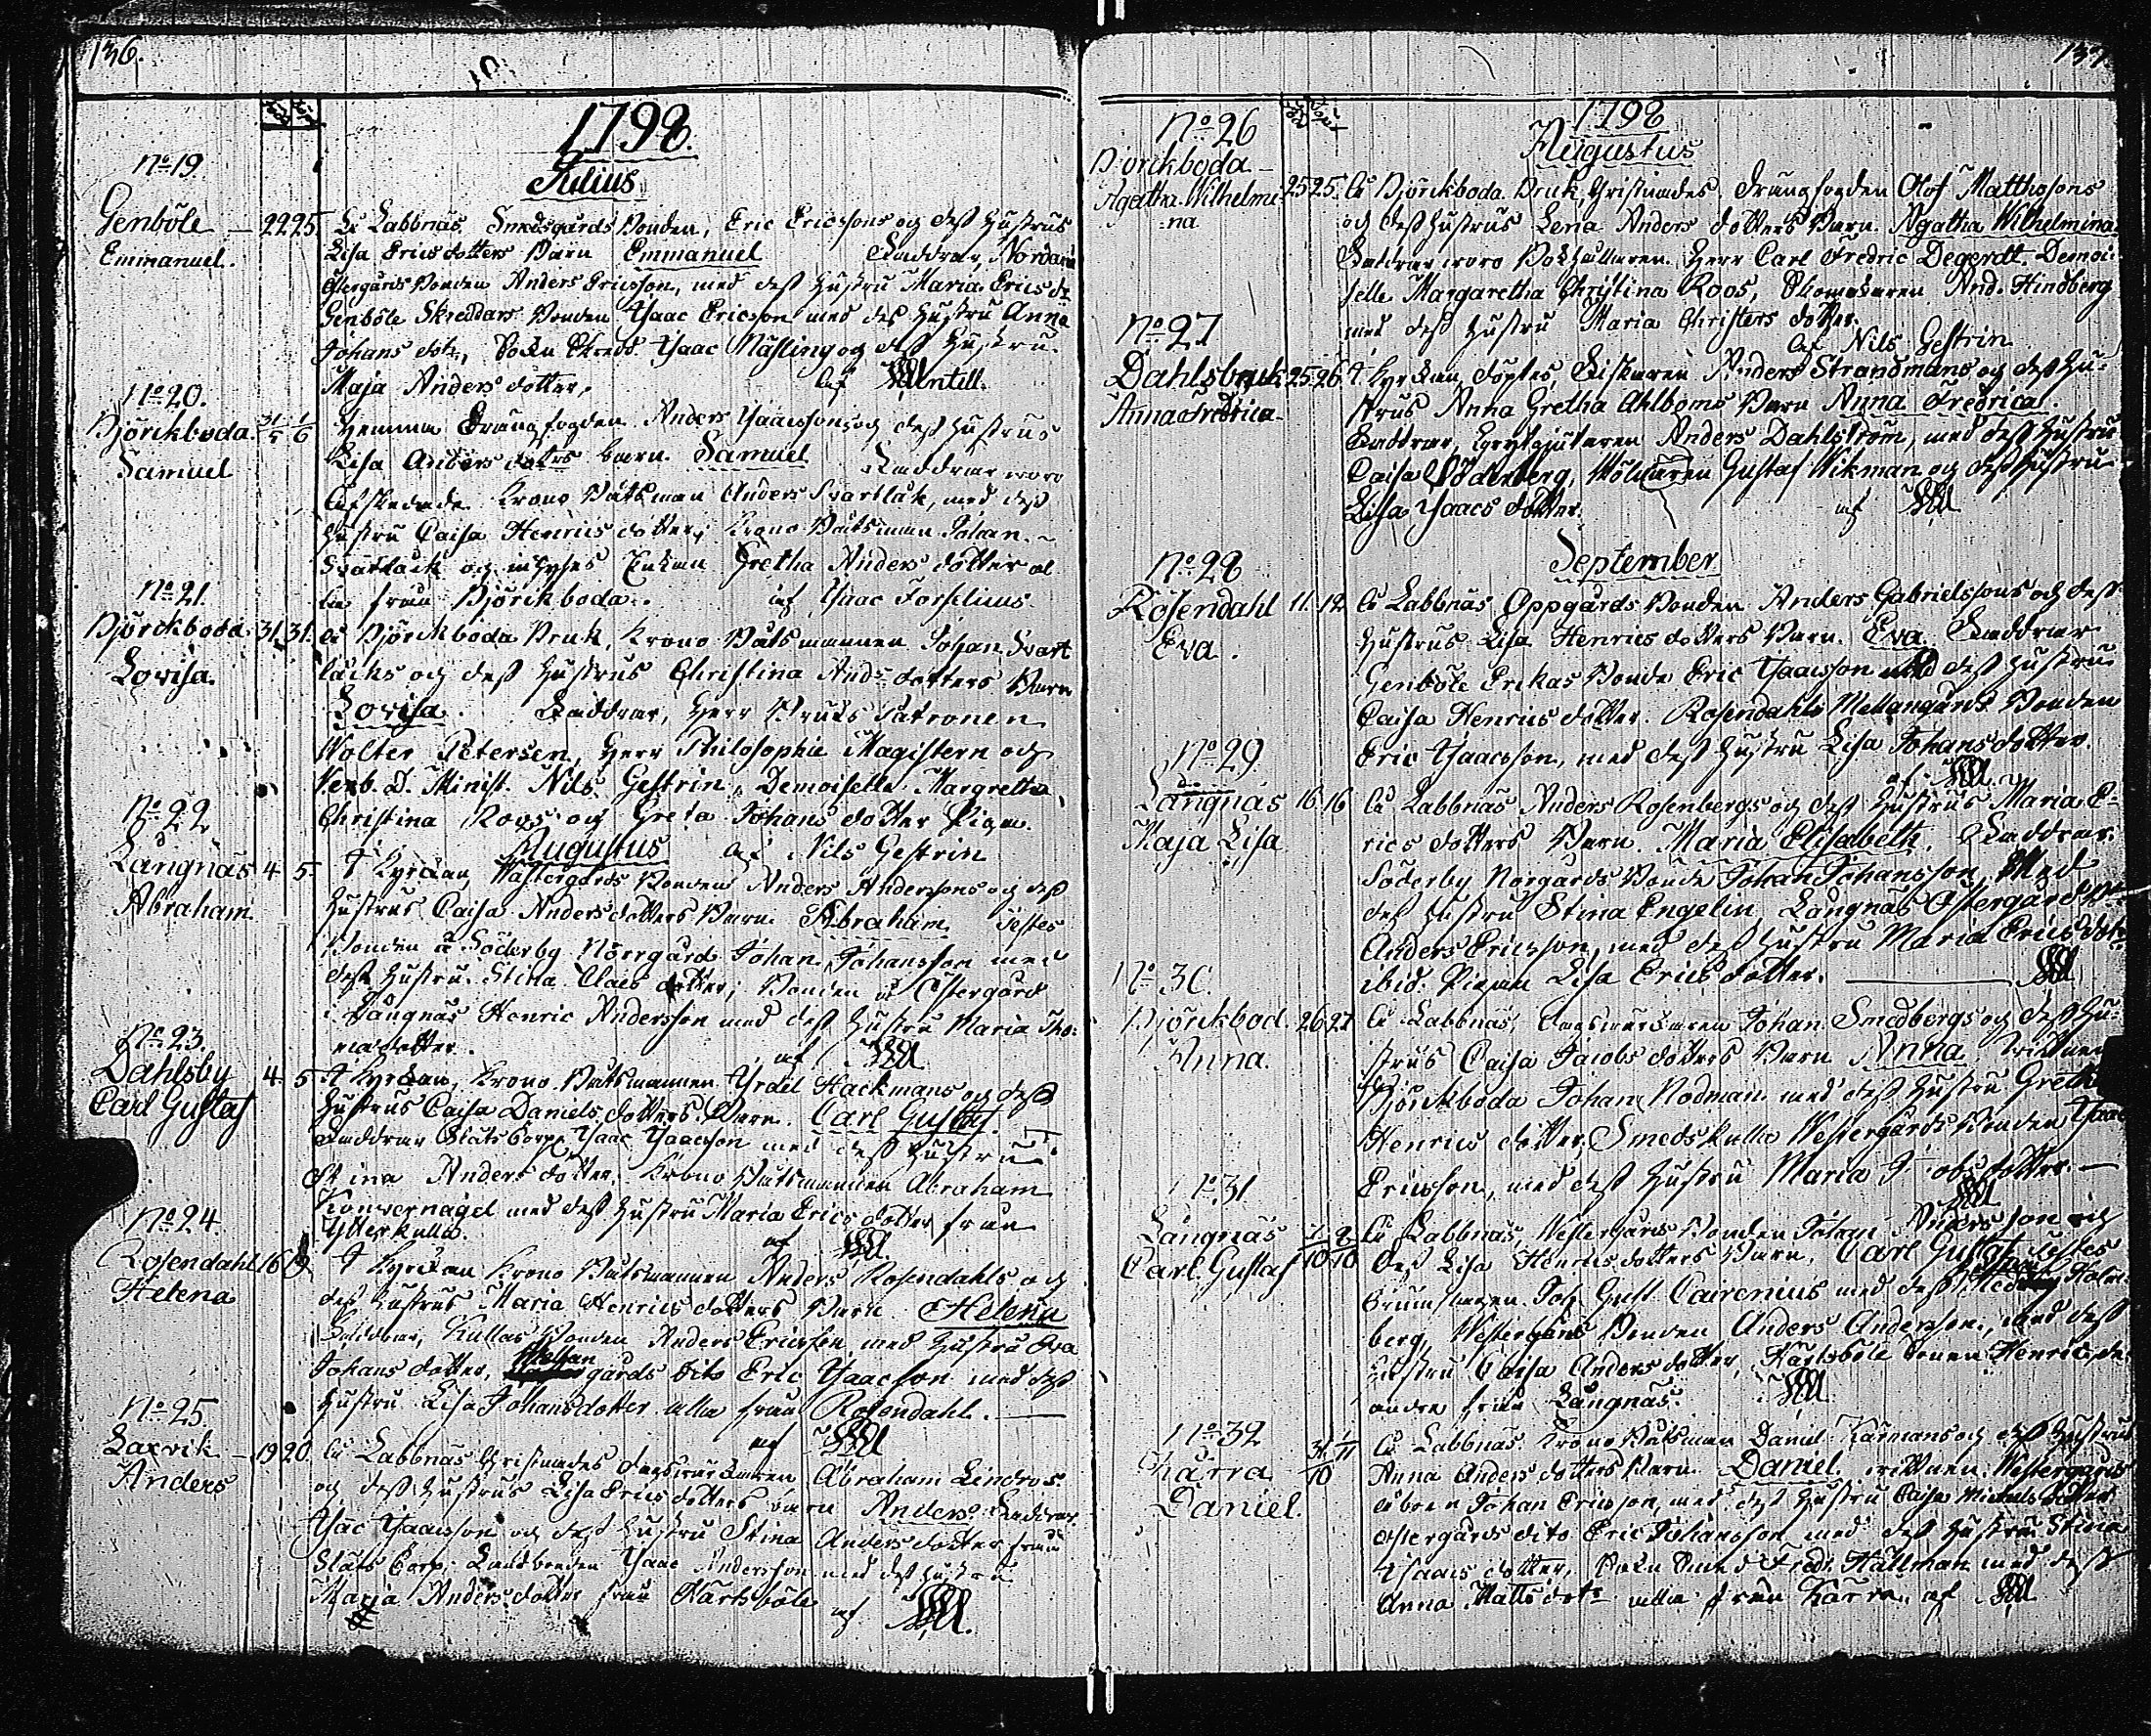 136.
1798.
Julius
No 19
Genböle 22 25
Emmanuel.
Labbnäs Smedsgårds Bonden, Eric Ericssons och dess Hustrus
Lisa Ericsdotters Barn Emmanuel Faddrar, Nordanå
Östergårds Bonden Anders Ericsson, med dess Hustru Maria Erics dr
Genböle Skreddars Bonden Ysaac Ericsson med dess Hustru Anna
Johans dotr, Ysaac Näsling och dess Hustru
Maja Anders dotter. af
No 20.
Björckboda 31/5 1/6
Samuel
Hemma Drängfogden Anders Ysaacssons och dess Hustrus
Lisa Anders dotrs barn Samuel Faddrar woro
Afskedade Krono Båtsman Anders Svartlåk, med dess
Hustru Caisa Henrics dotter, Krono Båtsman Johan
Svartlåck och Enkan Gretha Anders dotter al
la från Björckboda. af Ysaac Forselius
No 21.
Björckboda 31. 31.
Lovisa.
Björckboda Bruk, Krono Båtsmannen Johan Svart
låcks och dess Hustrus Christina Ands dotters Barn
Lovisa. Faddrar, Herr Bruks Patronen
Wolter Petersen, Herr Philosophiæ Magistern och
Verb. D. Minist. Nils Gestrin, Demoiselle Margretha
Christina Roos och Greta Johans dotter Pigan.
Af Nils Gestrin
Augustus
No 22
Långnäs 4 5
Abraham
I Kyrckan, Wästergårds Bonden Anders Anderssons och dess
Hustrus Caisa Andersdotters Barn Abraham Testes
Bonden å Söderby Norrgård Johan Johansson med
dess Hustru Stina Claes dotter, Bonden å Östergård
i Långnäs Henric Andersson med dess Hustru Maria Tho-
masdotter. af
No 23.
Dahlsby 4. 5
Carl Gustaf
I Kyrckan, Krono Båtsmannen Hackmans och dess
Hustrus Caisa Daniels dotters Barn. Carl Gustaf.
Faddrar Ysaac Ysaacsson med dess Hustru
Stina Anders dotter, Krono Båtsmannen Abraham
Konvernagel med dess Hustru Maria Erics dotter från
Ytterkulla. af
No 24
Rosendahl 16 19
Helena
I Kyrckan Krono Båtsmannen Anders Rosendahls och
dess Hustrus Maria Henrics dotters Barn Helena
Faddrar, Kullas Bonden Anders Ericsson med Hustru Eva
Johans dotter, Mellangårds dito Eric Ysaacsson med dess
Hustru Lisa Johansdotter alla från Rosendahl.
af
No 25
Laxvik 19 20
Anders
Labbnäs Christnades Abraham Lindros
och dess Hustrus Lisa Erics dotters barn Anders. Faddrar
Ysac Ysaacsson och dess Hustru Stina Anders dotter från
Ysaac Andersson med dess Hustru
Maria Anders dotter från Kårksböle af
137
1798
Augustus
No 26
Björckboda
Agatha Wilhelmi-
na
25 25
Björckboda Bruk, Christnades, Drängfogden Olof Matthssons
och dess Hustrus Lena Anders dotters Barn. Agatha Wilhelmina.
Faddrar woro Bokhållaren Herr Carl Fredric Degerdt. Demoi-
selle Margaretha Christina Roos, And. Hindberg
med dess Hustru Maria Christers dotter
af Nils Gestrin
No 27
Dahlsbruk 25 26
Anna Fredrica
I Kyrckan döptes, Anders Strandmans och dess Hu-
strus Anna Gretha Ahlboms Barn Anna Fredrica.
Faddrar, Anders Dahlström, med dess Hustru
Caisa Söderberg, Gustaf Wikman och dess Hustru
Lisa Ysaacs dotter. af
September
No 28
Rosendahl 11. 12.
Eva.
Labbnäs Oppgårds Bonden Anders Gabrielssons och dess
Hustrus Lisa Henrics dotters Barn. Eva. Faddrar
Genböle Erikas Bonde Eric Ysaacsson med dess Hustru
Caisa Henrics dotter. Rosendahls Mellangårds Bonden
Eric Ysaacsson, med dess Hustru Lisa Johansdotter.
af
No 29
Långnäs 16 16
Maja Lisa
Labbnäs Anders Rosenbergs och dess Hustrus Maria E-
rics dotters Barn. Maria Elisabeth. Faddrar.
Söderby Norgårds Bonde Johan Johansson, Med
dess Hustru Stina Engelin, Långnäs Östergårds
Anders Ericsson, med dess Hustru Maria Erics dotr
ibid. Pigan Lisa Erics dotter.
No 30.
Björckbod. 26 27
Anna.
Labbnäs, Johan Smedbergs och dess Hu-
strus Caisa Jacobs dotters Barn Anna. Wittnen
Björckboda Johan Nodman med dess Hustru Greth
Henrics dotter, Smedskulla Westergårds Bonden Ysaac
Ericsson, med dess Hustru Maria dotter.
No 31
Långnäs 7/10 8/10
Carl Gustaf
Labbnäs, Westergårds Bonden Johan Andersson och
dess Lisa Henricsdotters Barn, Carl Gustaf Testes
Joh Gust. Cairenius med dess Holm-
berg, Westergårds Bonden Anders Andersson, med dess
Hustru Caisa Anders dotter, Kårksböle Henric, de
andra från Långnäs.
No 32
Kärra 31/10 1/11
Daniel.
Labbnäs. Krono Båtsman Daniel Kärmans och dess Hustrus
Anna Anders dotters Barn Daniel. Wittnen, Westergårds
Johan Ericsson, med dess Hustru Caisa Michels dotter
Östergårds dito Eric Johansson med dess Hustru Stina
Ysaacs dotter, Fredr. Hällman med dess
Anna Matts dotr alla från Kärra af